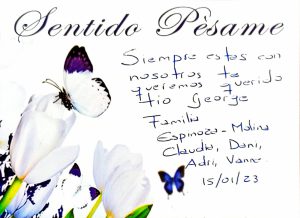 Sentido Pèsame
Siempre estas con
nosotros te
queremos querido
tio George
Familia
Espinoza - Molina
Claudia, Dani,
Adri, Vanne.
15/01/23